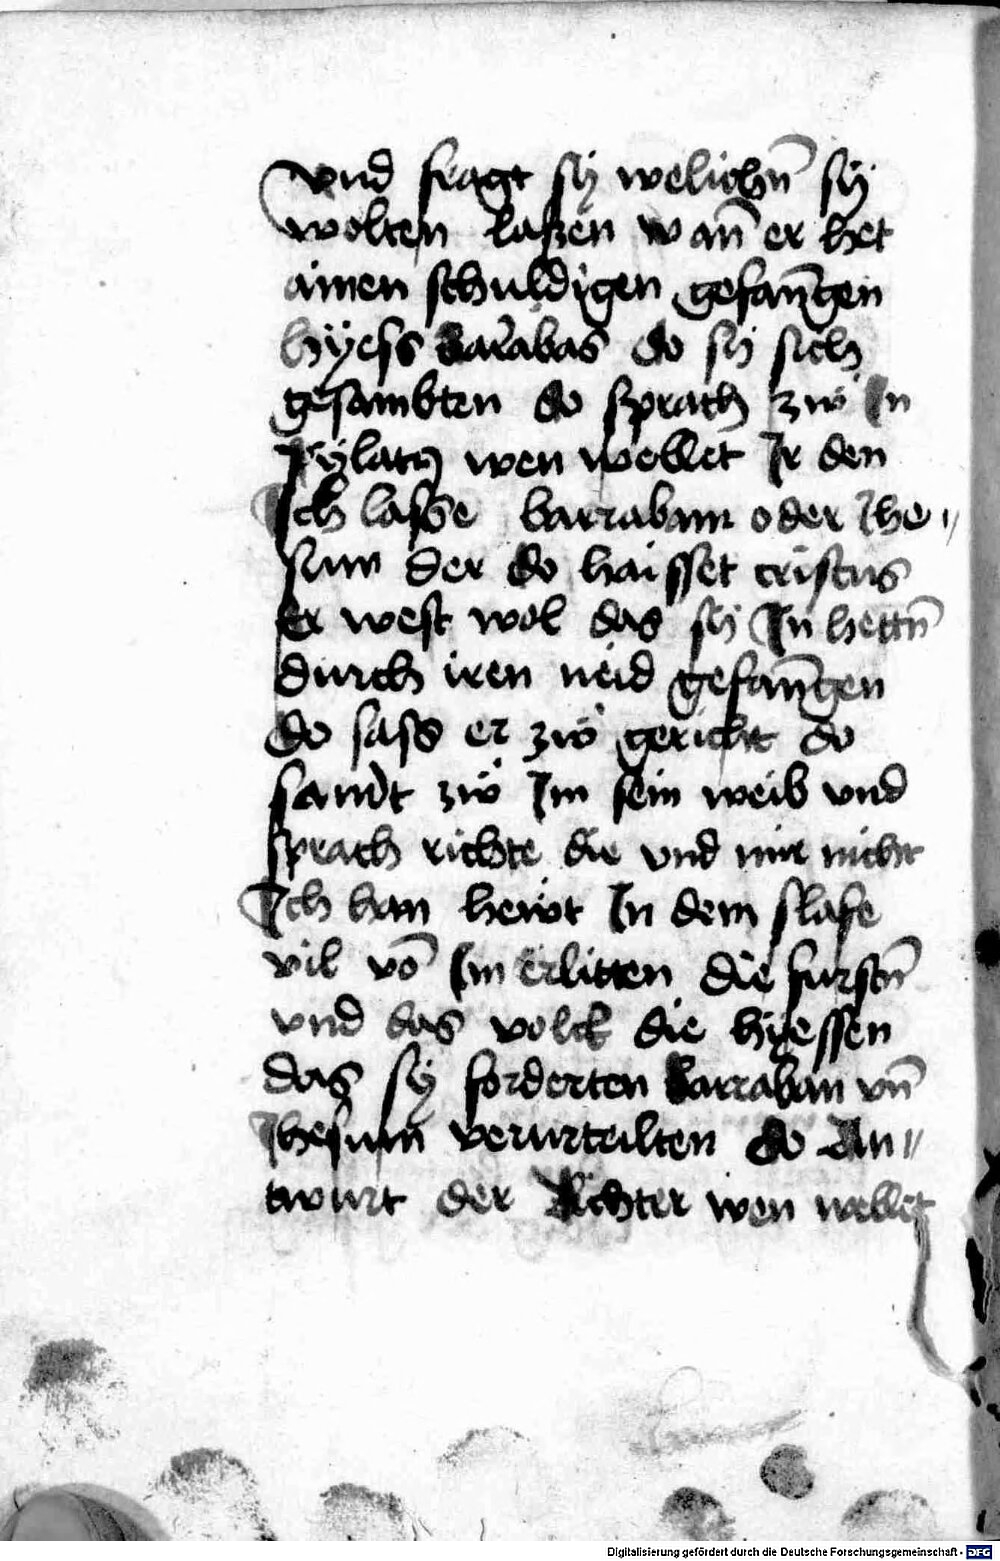 vnd fragt sÿ welichn̄ sÿ
wolten laszen wan̄ er het
ainen schuldigen gefan̄gen
hÿess barabas do sÿ sich
gesambten do sprach zwo In
Pÿlatus wen wellet Ir den
Ich lasse barrabam oder Jhe〃
sum der do haisset cristus
Er west wol das sÿ In hettn̄
durch iren neid gefan̄gen
do sass er zwo gericht do
sandt zwo Im sein weib vnd
sprach richte die vnd mir nicht
Ich han hewt In dem slafe
vil vō Im erlitten die furstn̄
vnd das volck die hÿessen
das sÿ forderten barraban vn̄
Jhesum verurteilten do An〃
twurt der Richter wen wellet
Digitalisierung gefördert durch die Deutsche Forschungsgemeinschaft - DFG